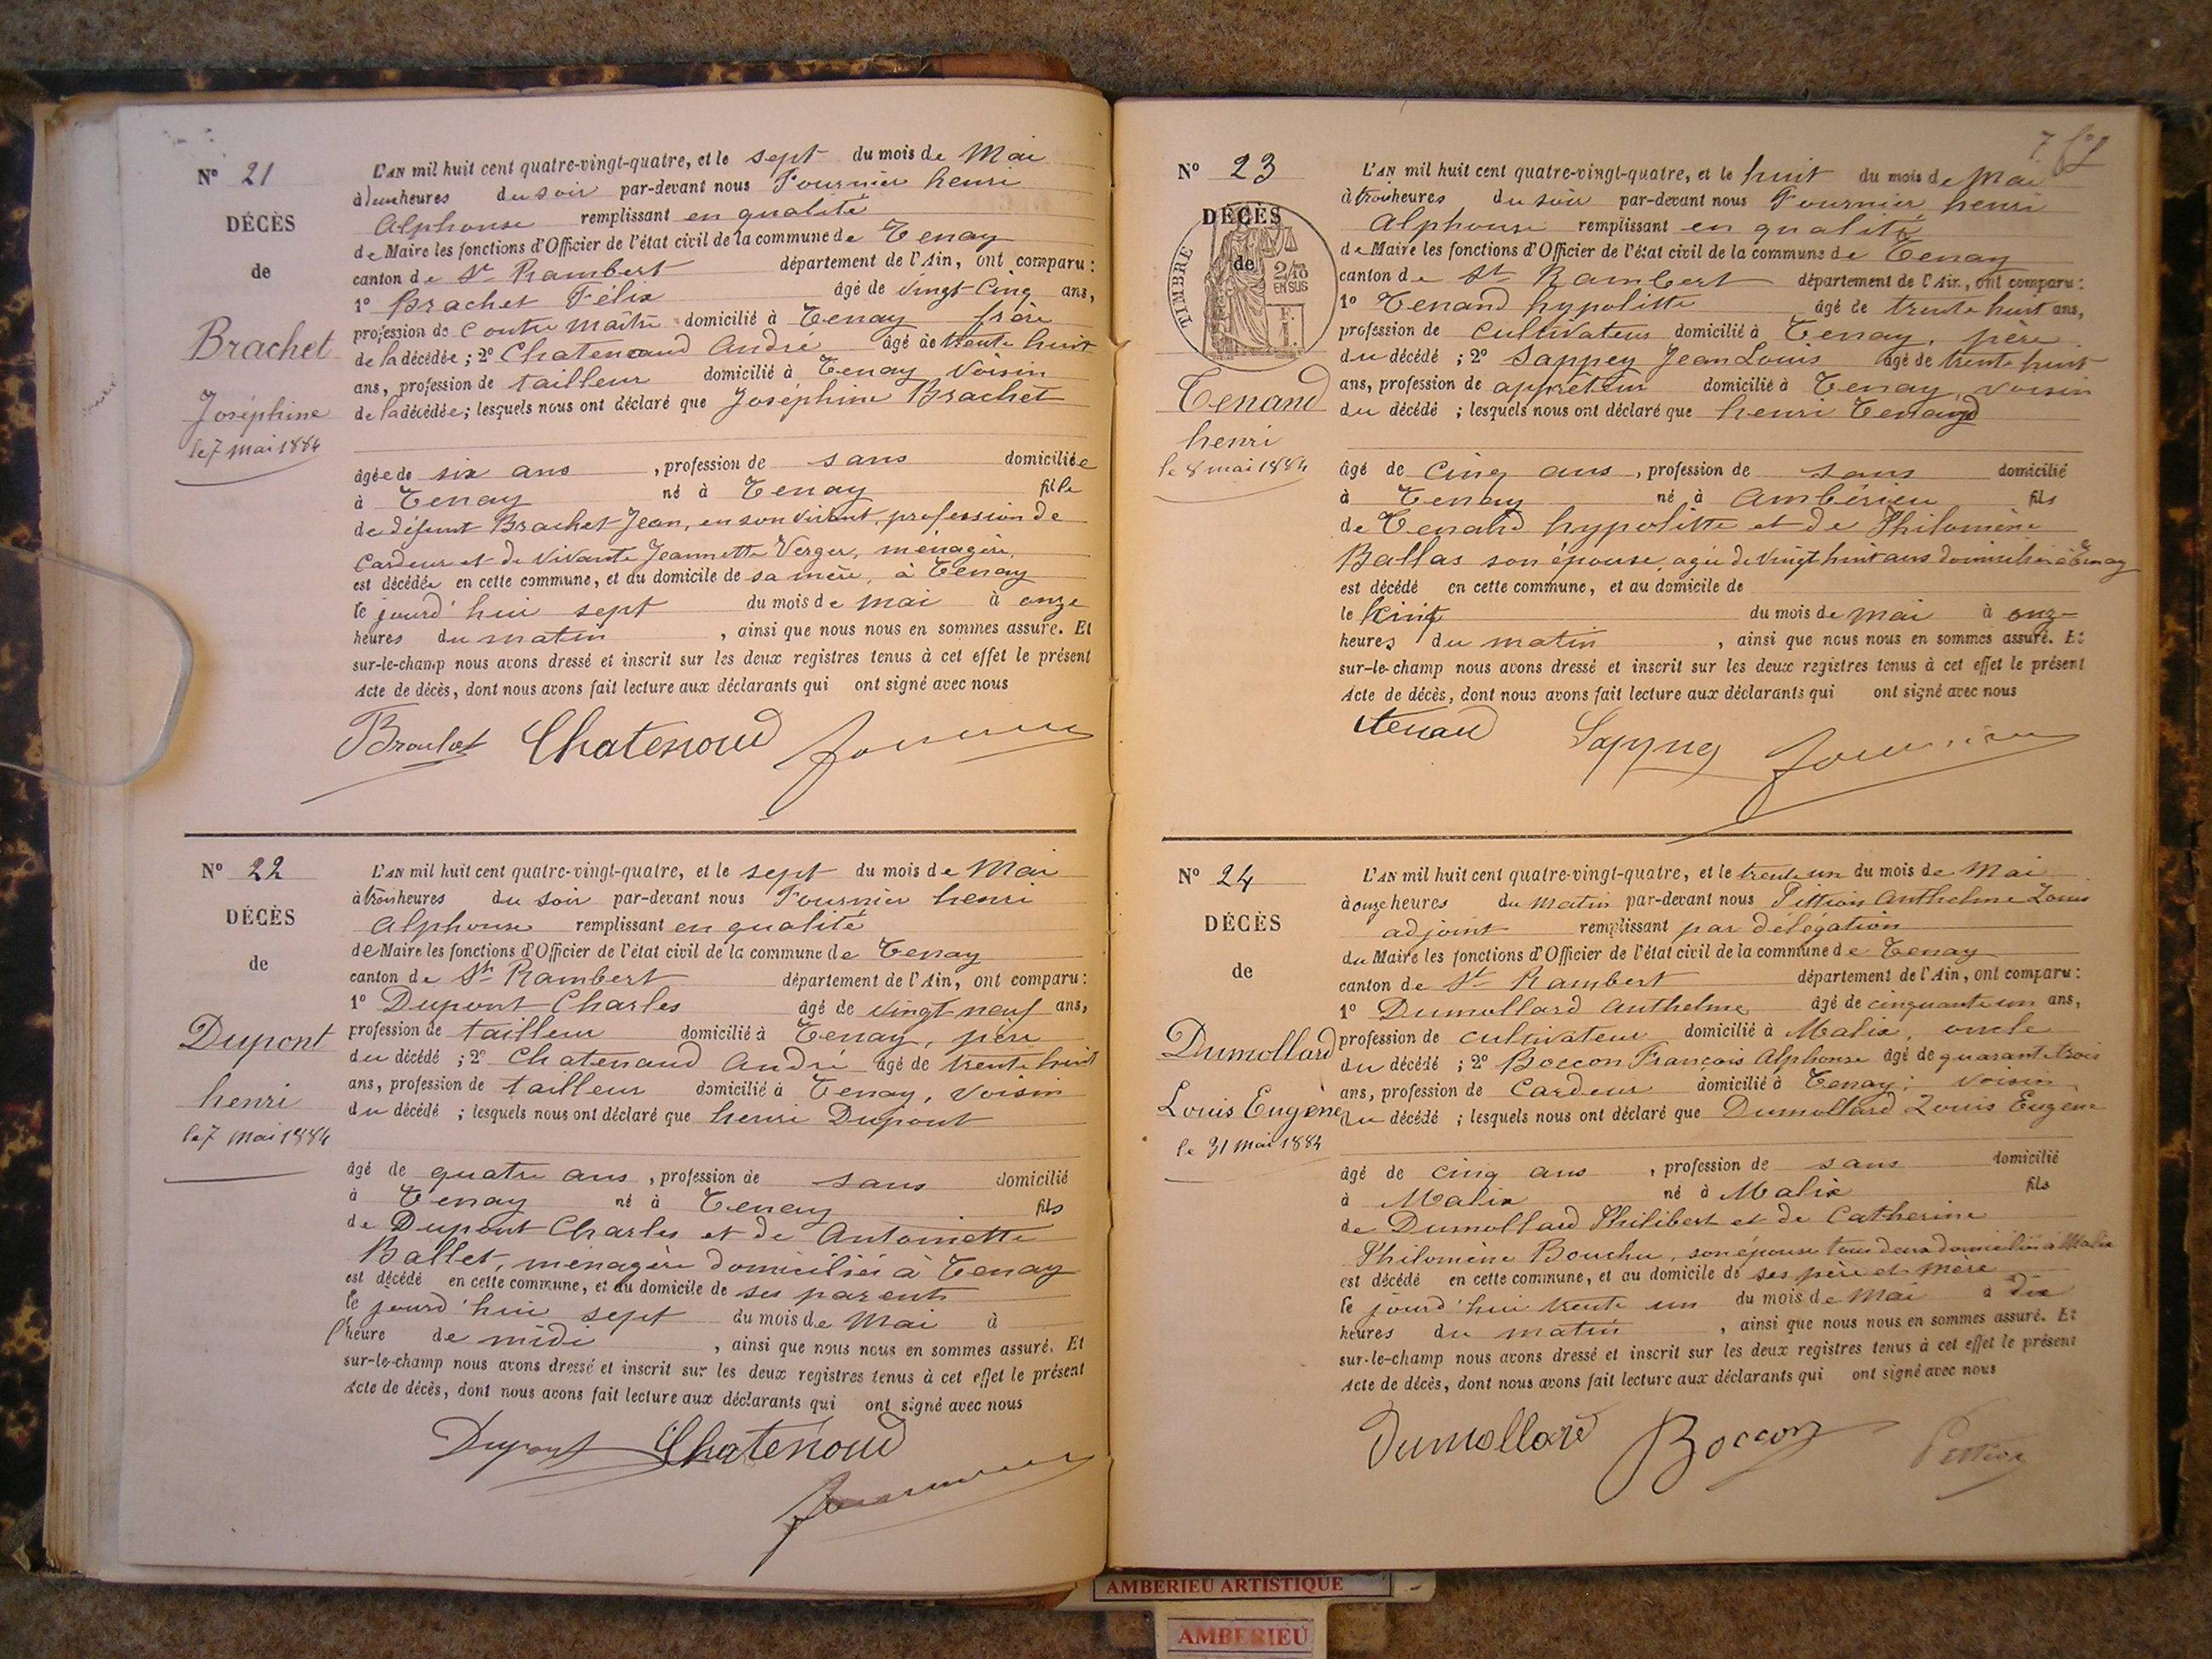 N° 21
DÉCÈS
de
Brachet
Joséphine
le 7 mai 1884
L'AN mil huit cent quatre-vingt-quatre, et le sept du mois de Mai
à deux heures du soir par-devant nous Fournier henri
Alphonse remplissant en qualité
de Maire les fonctions d'Officier de l'état civil de la commune de Tenay
canton de St Rambert département de l'Ain, ont comparu :
1° Brachet Félix âgé de vingt-cinq ans,
profession de Contre maître domicilié à Tenay frère
de la décédée ; 2° Chatenoud André âgé de trente huit
ans, profession de tailleur domicilié à Tenay Voisin
de la décédée ; lesquels nous ont déclaré que Joséphine Brachet
âgée de six ans , profession de sans domiciliée
à Tenay né à Tenay fille
de défunt Brachet Jean, en son vivant, profession de
Cardeur et de vivante Jeannette Verger, ménagère,
est décédée en cette commune, et au domicile de sa mère, à Tenay
le jourd'hui sept du mois de mai à onze
heures du matin , ainsi que nous nous en sommes assuré. Et
sur-le-champ nous avons dressé et inscrit sur les deux registres tenus à cet effet le présent
Acte de décès, dont nous avons fait lecture aux déclarants qui ont signé avec nous
Chatenoud
N° 22
DÉCÈS
de
Dupont
henri
le 7 mai 1884
L'AN mil huit cent quatre-vingt-quatre, et le sept du mois de Mai
à trois heures du soir par-devant nous Fournier henri
Alphonse remplissant en qualité
de Maire les fonctions d'Officier de l'état civil de la commune de Tenay
canton de St Rambert département de l'Ain, ont comparu :
1° Dupont Charles âgé de vingt neuf ans,
profession de tailleur domicilié à Tenay, père
du décédé ; 2° Chatenoud André âgé de trente huit
ans, profession de tailleur domicilié à Tenay, Voisin
du décédé ; lesquels nous ont déclaré que henri Dupont
âgé de quatre ans , profession de sans domicilié
à Tenay né à Tenay fils
de Dupont Charles et de Antoinette
Ballet, ménagère domiciliés à Tenay
est décédé en cette commune, et au domicile de ses parents
le jourd'hui sept du mois de Mai à
l'heure de midi , ainsi que nous nous en sommes assuré. Et
sur-le-champ nous avons dressé et inscrit sur les deux registres tenus à cet effet le présent
Acte de décès, dont nous avons fait lecture aux déclarants qui ont signé avec nous
Dupont Chatenoud
7
N° 23
DÉCÈS
de
TIMBRE
2/10
EN SUS
F.
1.
Tenand
henri
le 8 mai 1884
L'AN mil huit cent quatre-vingt-quatre, et le huit du mois de Mai
à trois heures du soir par-devant nous Fournier henri
Alphonse remplissant en qualité
de Maire les fonctions d'Officier de l'état civil de la commune de Tenay
canton de St Rambert département de l'Ain, ont comparu :
1° Tenand hypolitte âgé de trente huit ans,
profession de cultivateur domicilié à Tenay, père
du décédé ; 2° Sappey Jean Louis âgé de trente huit
ans, profession de apprêteur domicilié à Tenay, voisin
du décédé ; lesquels nous ont déclaré que henri Tenand
âgé de cinq ans , profession de sans domicilié
à Tenay né à Ambérieu fils
de Tenand hypolitte et de Philomène
Ballas son épouse, agée de vingt huit ans domiciliés à Tenay
est décédé en cette commune, et au domicile de
le huit du mois de mai à onze
heures du matin , ainsi que nous nous en sommes assuré. Et
sur-le-champ nous avons dressé et inscrit sur les deux registres tenus à cet effet le présent
Acte de décès, dont nous avons fait lecture aux déclarants qui ont signé avec nous
tenand Sappey
N° 24
DÉCÈS
de
Dumollard
Louis Eugène
le 31 mai 1884
L'AN mil huit cent quatre-vingt-quatre, et le trente un du mois de Mai
à onze heures du matin par-devant nous Pittion Anthelme Louis
adjoint remplissant par délégation
du Maire les fonctions d'Officier de l'état civil de la commune de Tenay
canton de St Rambert département de l'Ain, ont comparu :
1° Dumollard Anthelme âgé de cinquante un ans,
profession de cultivateur domicilié à Malix, oncle
du décédé ; 2° Boccon François Alphonse âgé de quarante trois
ans, profession de Cardeur domicilié à Tenay ; Voisin
du décédé ; lesquels nous ont déclaré que Dumollard Louis Eugene
âgé de cinq ans , profession de sans domicilié
à Malix né à Malix fils
de Dumollard Philibert et de Catherine
Philomène Bouchu, son épouse tous deux domiciliés à Malix
est décédé en cette commune, et au domicile de ses père et mère
le jourd'hui trente un du mois de Mai à dix
heures du matin , ainsi que nous nous en sommes assuré. Et
sur-le-champ nous avons dressé et inscrit sur les deux registres tenus à cet effet le présent
Acte de décès, dont nous avons fait lecture aux déclarants qui ont signé avec nous
Dumollard Boccon Pittion
AMBERIEU ARTISTIQUE
AMBERIEU